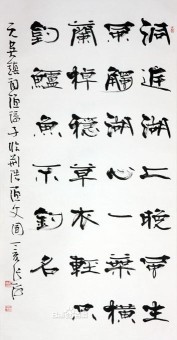 洞庭湖上晚風生
風觸湖心一葉橫
蘭棹穩草衣輕只
釣鱸魚不釣名
元吳鎮詞 臨荆浩漁父圖 丁亥